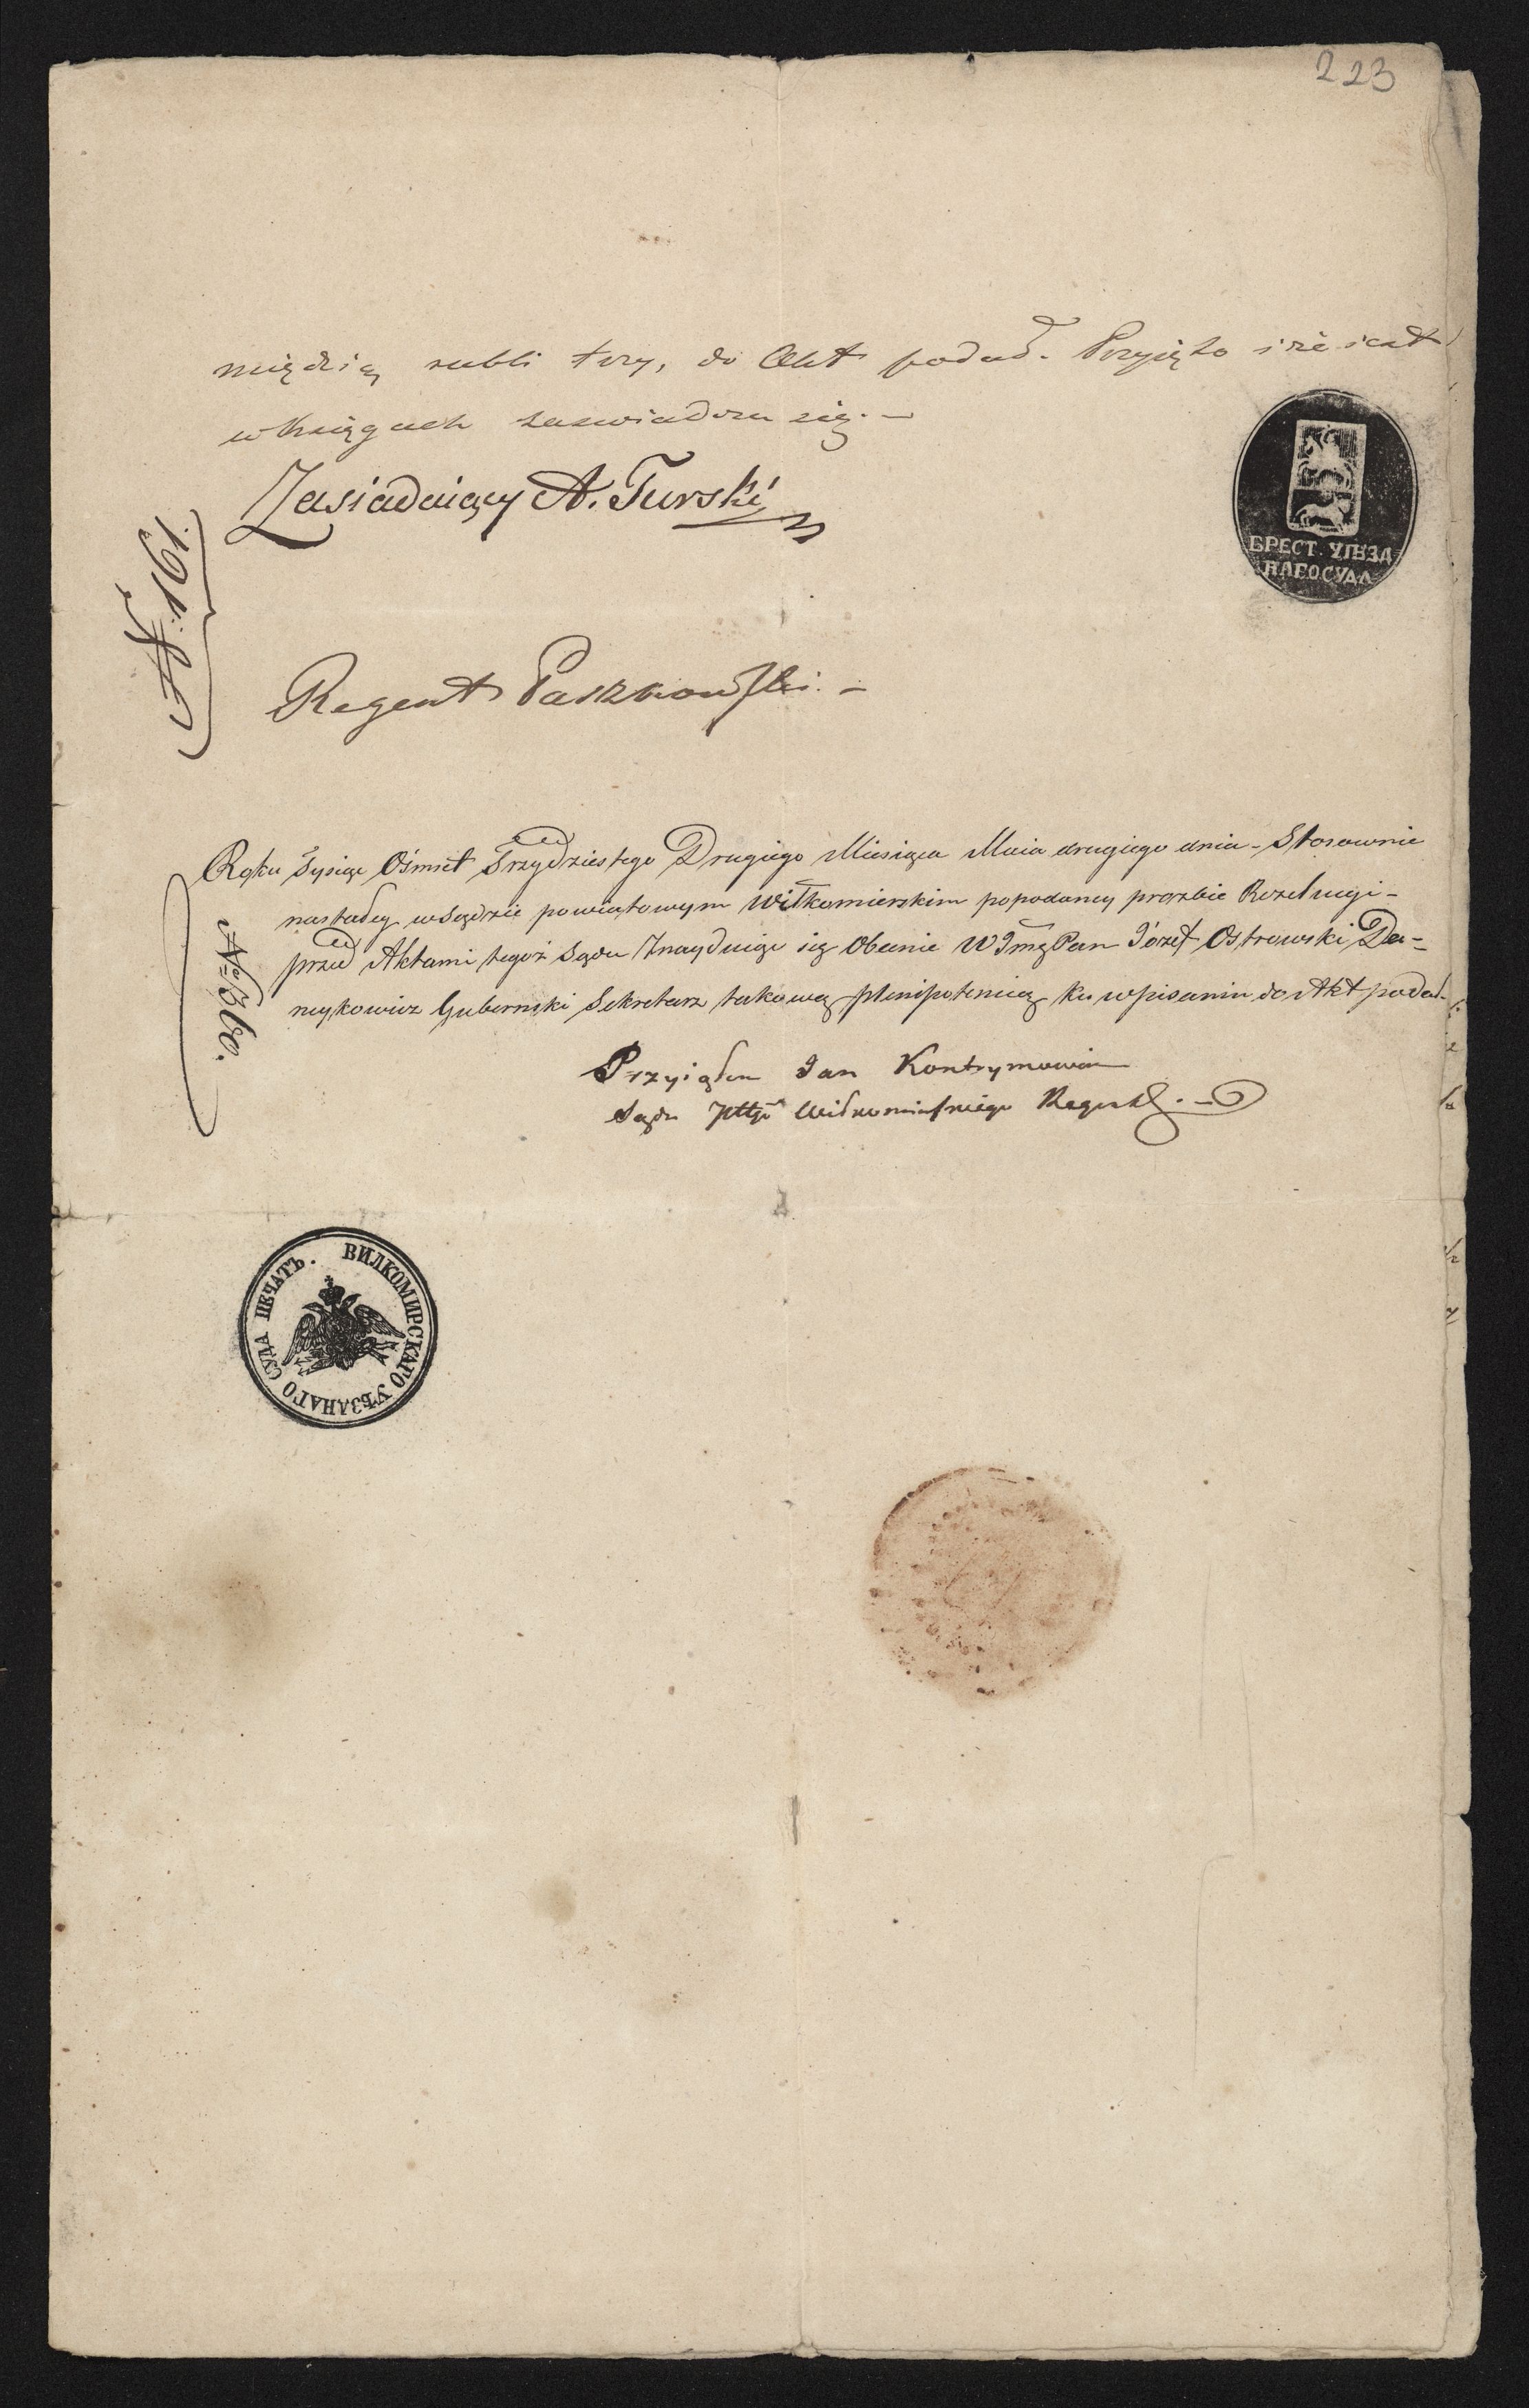 223
międzią rubli trzy, do Akt podał. Przyięto i że iest
w księgach zaswiadcza się. —
Zasiadaiący A. Turski
№ 191.
БРЕСТ. УѢЗД
НАГО СУДА
Regent Paszkowski. —
Roku Tysiąc Ośmset Trzydziestego Drugiego Miesiąca Maia drugiego dnia - Stosownie
nastałey w Sądzie powiatowym Wiłkomierskim popodaney prozbie Rezolucyi -
przed Aktami tegoż Sądu Znayduiąc się Obecnie WJmć Pan Józef Ostrowski Da-
neykowicz Gubernski Sekretarz takową plenipotencią ku wpisaniu do Akt podał.
№ 360.
Przyiąłem Jan Kontrymowicz
Sądu Pttgo Wiłkomirskiego Regent. —
ВИЛКОМИРСКАГО УѢЗДНАГО СУДА ПЕЧАТЬ.